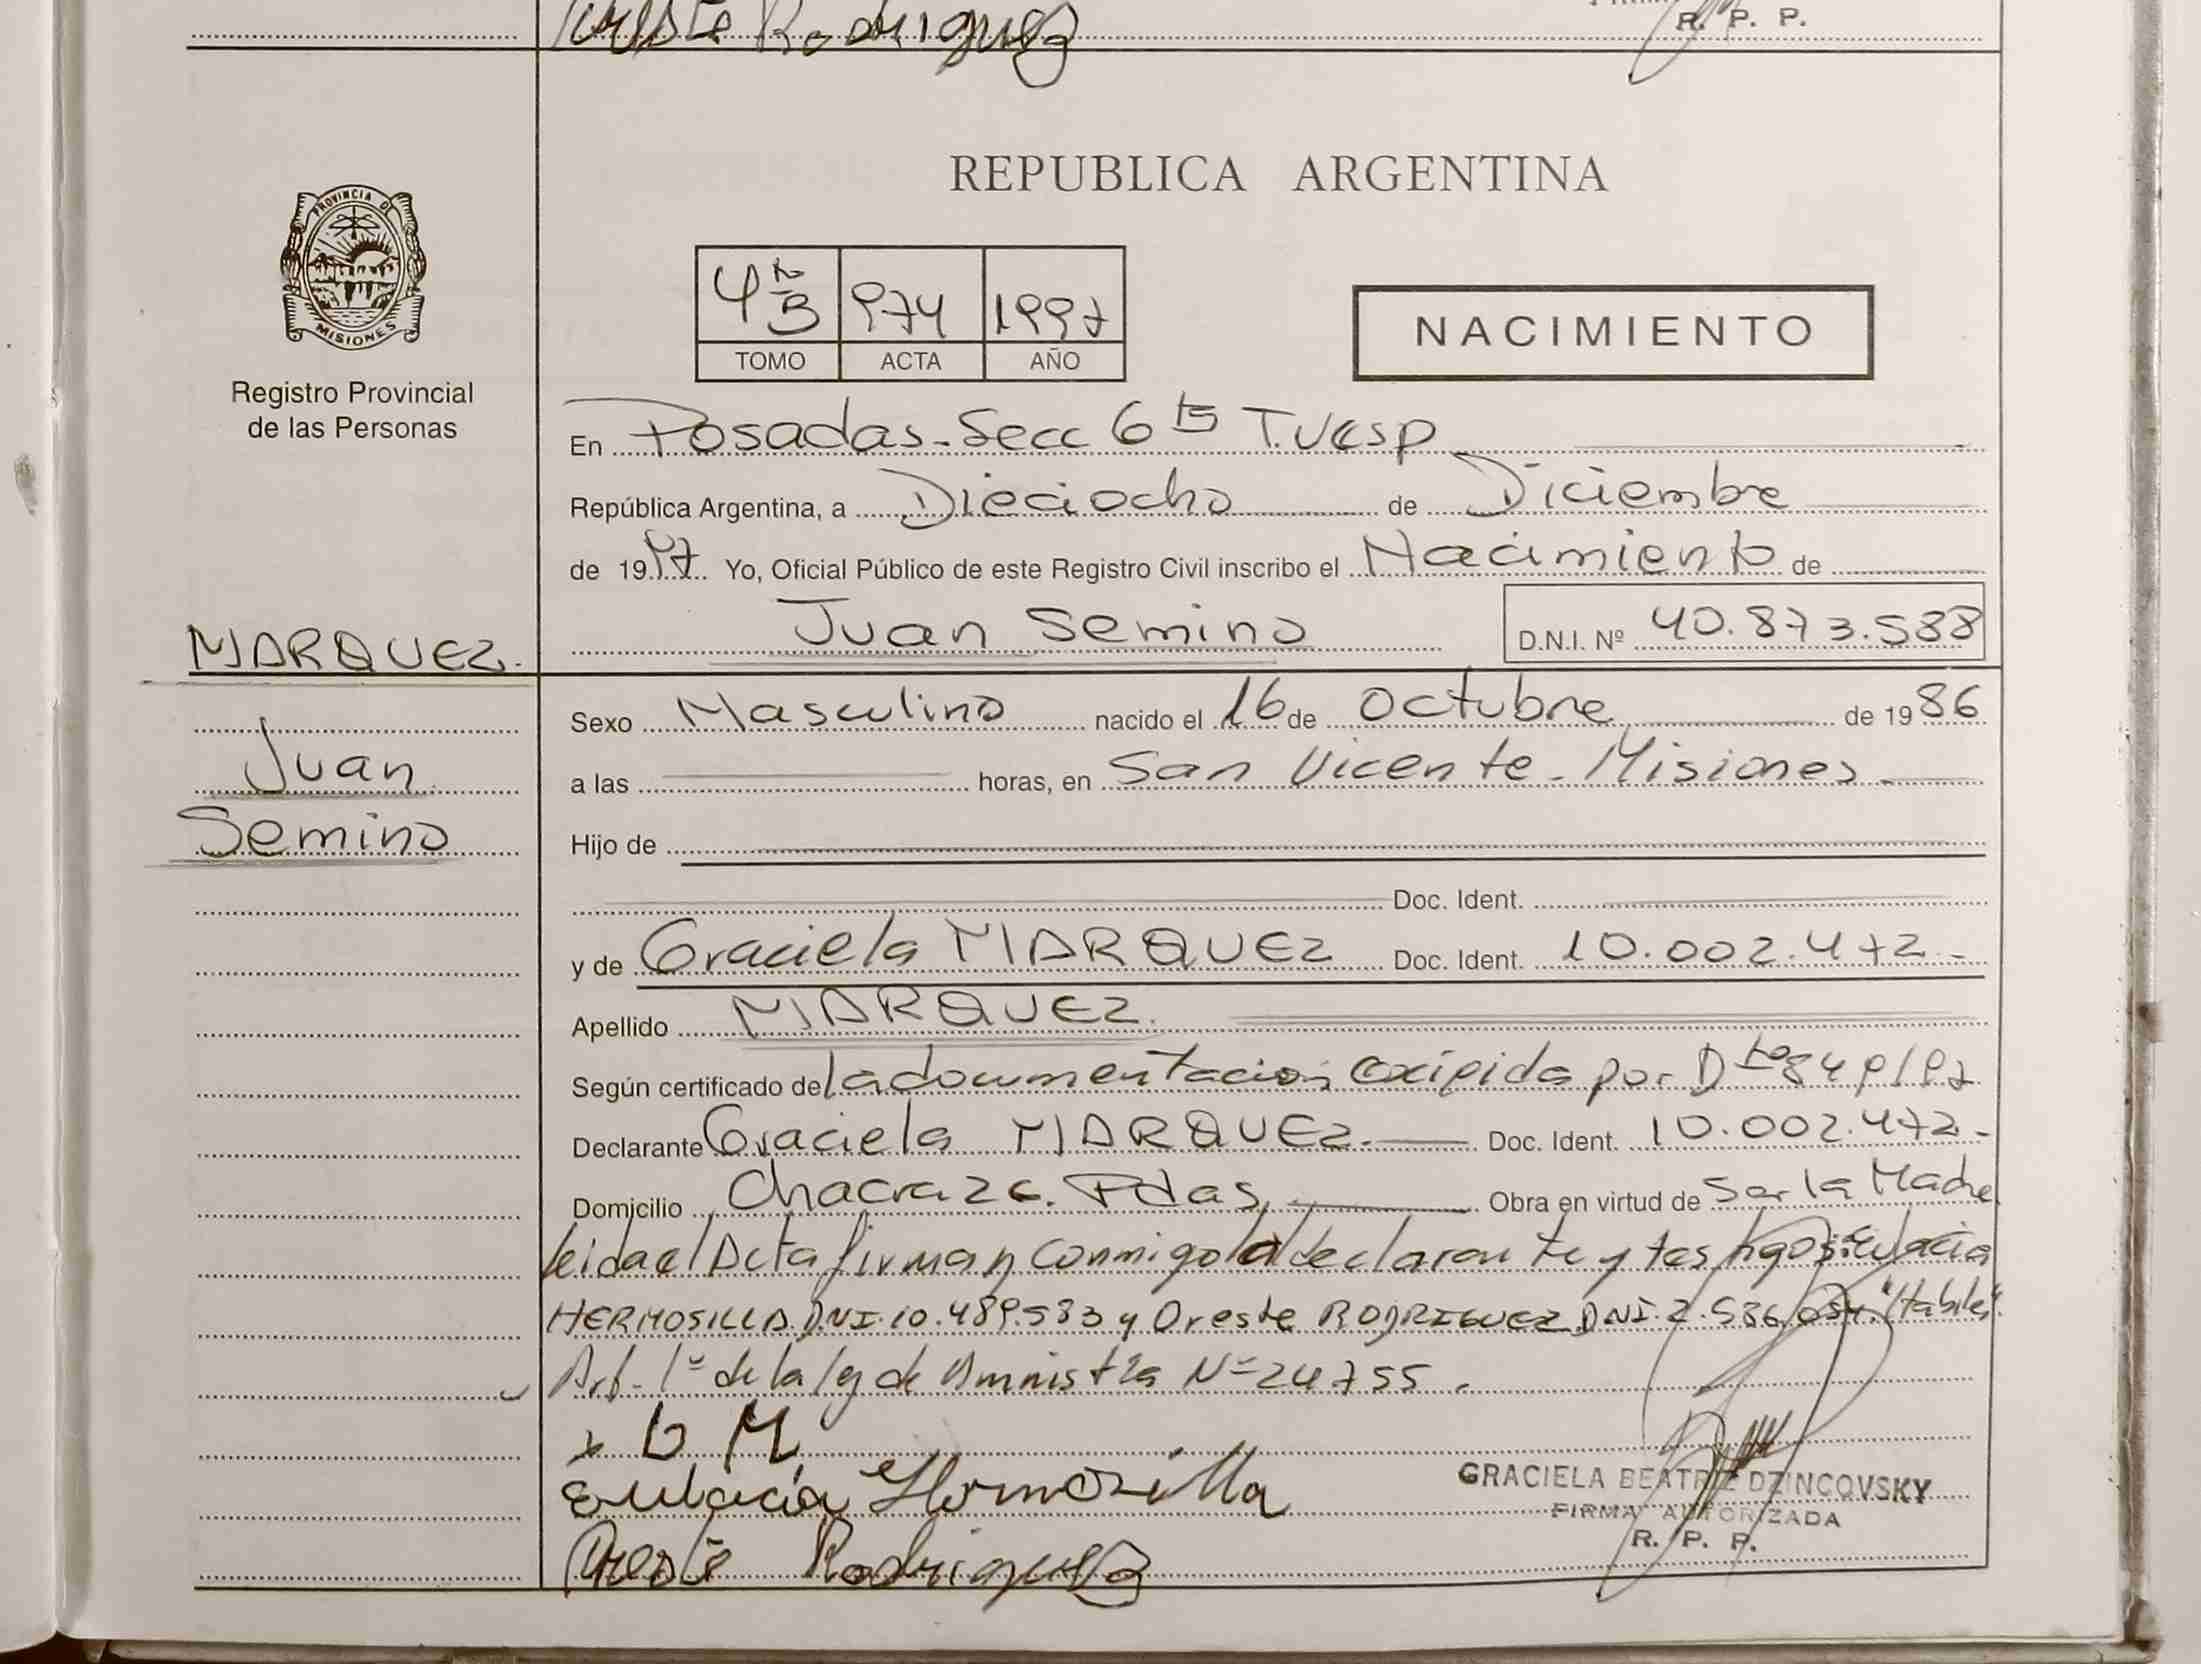 Oreste Rodriguez
R. P. P.
REPUBLICA ARGENTINA
PROVINCIA DE
MISIONES
Registro Provincial
de las Personas
4to B 974 1997
TOMO ACTA AÑO
NACIMIENTO
En Posadas-Secc 6ta T.Vesp
República Argentina, a Dieciocho de Diciembre
de 1997 Yo, Oficial Público de este Registro Civil inscribo el Nacimiento de
Juan Semino D.N.I. Nº 40.873.588
MARQUEZ.
Juan
Semino
Sexo Masculino nacido el 16 de Octubre de 1986
a las horas, en San Vicente - Misiones -
Hijo de
Doc. Ident.
y de Graciela MARQUEZ Doc. Ident. 10.002.472-
Apellido MARQUEZ.
Según certificado de la documentación exigida por Dto 849/97
Declarante Graciela MARQUEZ. Doc. Ident. 10.002.472-
Domicilio Chacra 26. Pdas. Obra en virtud de Ser la Madre
leida el Acta firman conmigo la declarante y testigos: Eulacia
HERMOSILLA DNI.10.489.583 y Oreste RODRIGUEZ DNI.7.586.054. "Habiles".
Art. 1º de la ley de Amnistía Nº 24755.
x G M
Eulacia Hermosilla
Oreste Rodriguez
GRACIELA BEATRIZ DZINCOVSKY
FIRMA AUTORIZADA
R. P. P.